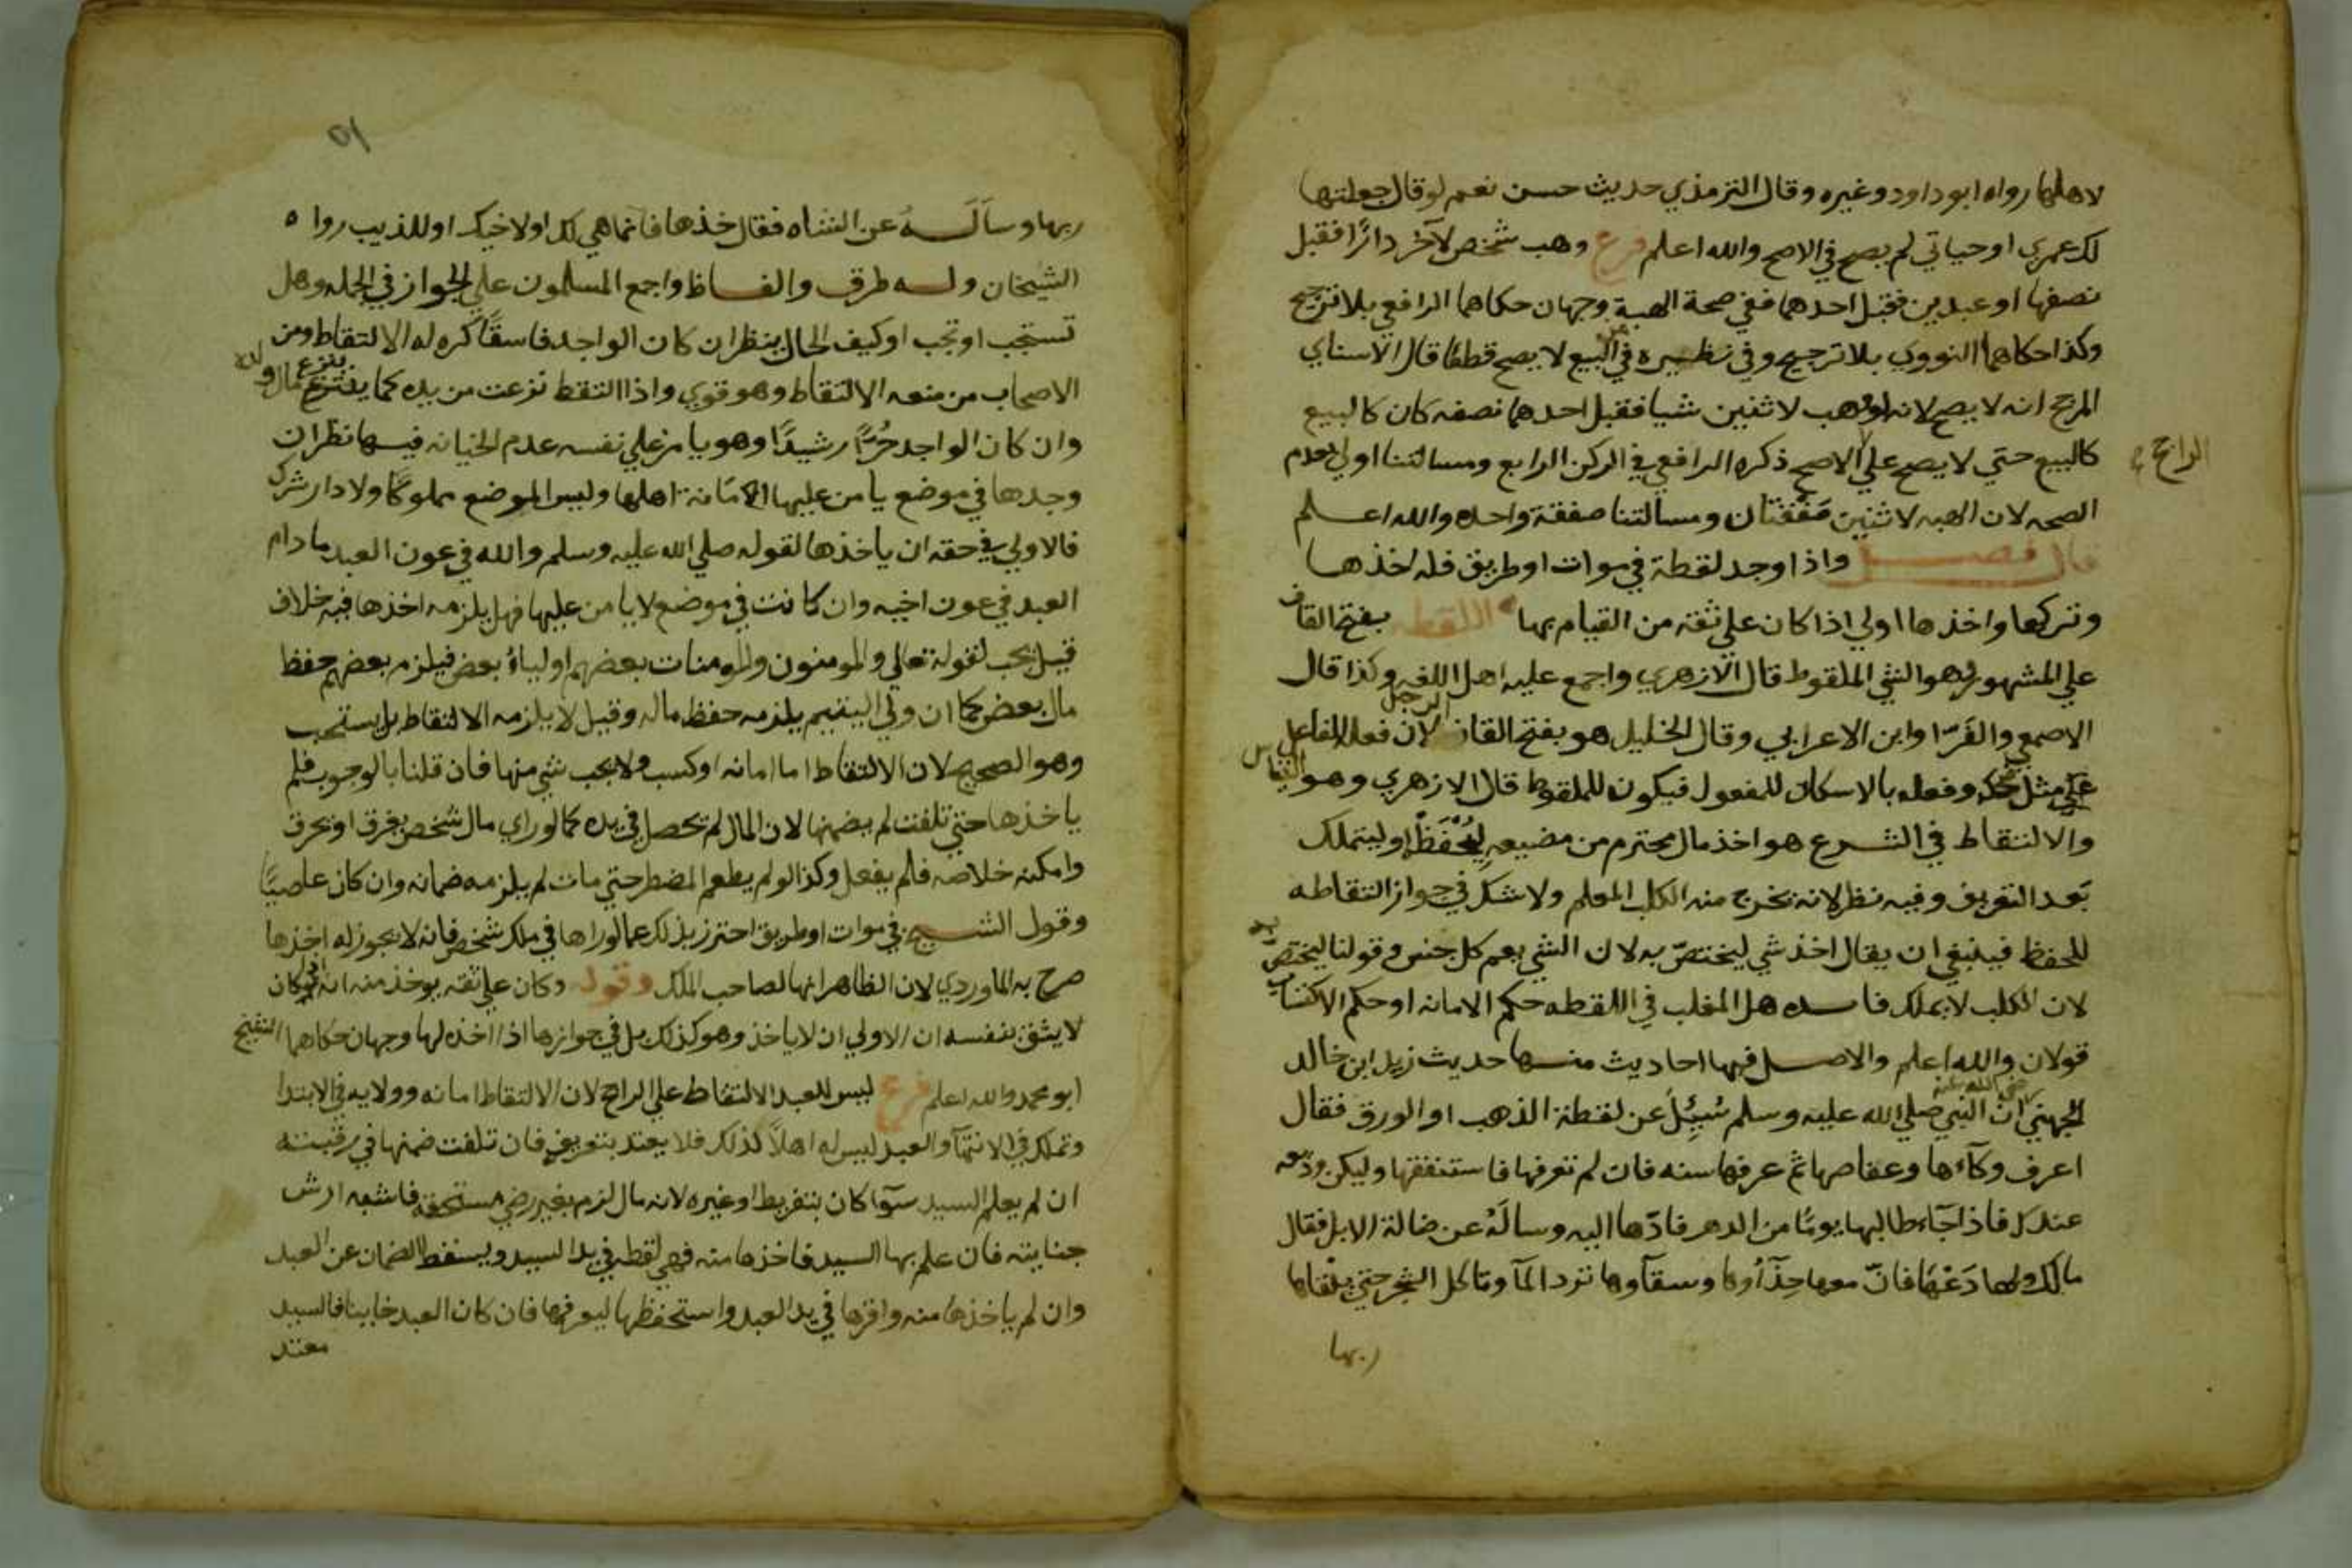 لاهلها رواه ابو داود وغيره وقال الترمذي حديث حسن نعم لو قال جعلتها
لك عمري او حياتي لم يصح في الاصح والله اعلم فرع وهب شخص لآخر دارًا فقبل
نصفها او عبدين فقبل احدهما ففي صحة الهبة وجهان حكاهما الرافعي بلا ترجيح
وكذا حكاهما النووي بلا ترجيح وفي نظيره من البيع لا يصح قطعًا قال الاسناي
المرجح انه لا يصح لانه لو وهب لاثنين شيا فقبل احدهما نصفه كان كالبيع
كالبيع حتي لا يصح علي الاصح ذكره الرافعي في الركن الرابع ومسالتنا اولي بعدم
الراجح
الصحه لان الهبه لاثنين صفقتان ومسالتنا صفقة واحده والله اعلم
قال فصل واذا وجد لقطة في موات او طريق فله اخذها
وتركها واخذها اولي اذا كان علي ثقة من القيام بها اللقطه بفتح القاف
علي المشهور وهو الشي الملقوط قال الازهري واجمع عليه اهل اللغه وكذا قال
الاصمعي والفَرّا وابن الاعرابي وقال الخليل هو بفتح القاف الرجل لان فعله للفاعل
مثل ضحكه وفعله بالاسكان للمفعول فيكون للملقوط قال الازهري وهو القياس
والالتقاط في الشرع هو اخذ مال محترم من مضيعه ليُحْفَظ او ليتملك
بَعد التعريف وفيه نظر لانه يخرج منه الكلب المعلم ولا شك في جواز التقاطه
للحفظ فينبغي ان يقال اخذ شي ليختصّ به لان الشي يعم كل جنس وقولنا ليختص به
لان الكلب لا يملك فايده هل المغلب في اللقطه حكم الامانه او حكم الاكتساب
قولان والله اعلم والاصل فيها احاديث منها حديث زيد ابن خالد
الجهني رضي الله عنه انّ النبي صلي الله عليه وسلم سُئِلَ عن لقطة الذهب او الورق فقال
اعرف وكآءها وعفاصها ثم عرفها سنه فان لم تعرفها فاستنفقها وليكن وديعه
عندك فاذا جَآء طالبها يومًا من الدهر فادّها اليه وسالَهُ عن ضالة الابل فقال
مالك ولها دَعْهَا فانّ معها حِذَآوها وسقآوها ترد المآ وتاكل الشجر حتي يلقاها
ربها
٥١
ربها وسالَهُ عن الشاه فقال خذها فانما هي لك او لاخيك او للذيب رواه
الشيخان وله طرق والفاظ واجمع المسلمون علي الجواز في الجمله وهل
تستحب او تجب او كيف الحال ينظر ان كان الواجد فاسقًا كره له الالتقاط ومن
الاصحاب من منعه الالتقاط وهو قوي واذا التقط نزعت من يده كما ينتزع مال ولده
وان كان الواجد حُرًّا رشيدًا وهو يامن علي نفسه عدم الخيانه فيها نظر ان
وجدها في موضع يامن عليها لامانة اهلها وليس الموضع مملوكًا ولا دار شرك
فالاولي في حقه ان ياخذها لقوله صلي الله عليه وسلم والله في عون العبد ما دام
العبد في عون اخيه وان كانت في موضع لا يامن عليها فهل يلزمه اخذها فيه خلاف
قيل يجب لقوله تعالي والمومنون والمومنات بعضهم اولياءُ بعض فيلزم بعضهم حفظ
مال بعض كما ان ولي اليتيم يلزمه حفظ ماله وقيل لا يلزمه الالتقاط بل يستحب
وهو الصحيح لان الالتقاط اما امانه او كسب ولا يجب شي منها فان قلنا بالوجوب فلم
ياخذها حتي تلفت لم يضمنها لان المال لم يحصل في يده كما لو راي مال شخص يغرق او يحرق
وامكنه خلاصه فلم يفعل وكذا لو لم يطعم المضطر حتي مات لم يلزمه ضمانه وان كان عاصيًا
وقول الشيخ في موات او طريق احترز بذلك عما لو راها في ملك شخص فانه لا يجوز له اخذها
صرح به الماوردي لان الظاهر انها لصاحب الملك وقوله وكان علي ثقه يوخذ منه انه لو كان
لا يثق بنفسه ان الاولي ان لا ياخذ وهو كذلك بل في جوازها اذا اخذه لها وجهان حكاهما الشيخ
ابو محمد والله اعلم فرع ليس للعبد الالتقاط علي الراجح لان الالتقاط امانه وولايه في الابتدا
وتملك في الانتهآ والعبد ليس له اهلاً لذلك فلا يعتد بتعريفه فان تلفت ضمنها في رقبته
ان لم يعلم السيد سوَآ كان بتفريط او غيره لانه مال لزم بغير رضي مستحقه فاشبه ارش
جنايته فان علم بها السيد فاخذها منه فهي لقطه في يد السيد ويسقط الضمان عن العبد
وان لم ياخذها منه واقرها في يد العبد واستحفظها ليعرفها فان كان العبد خاينا فالسيد
معتد